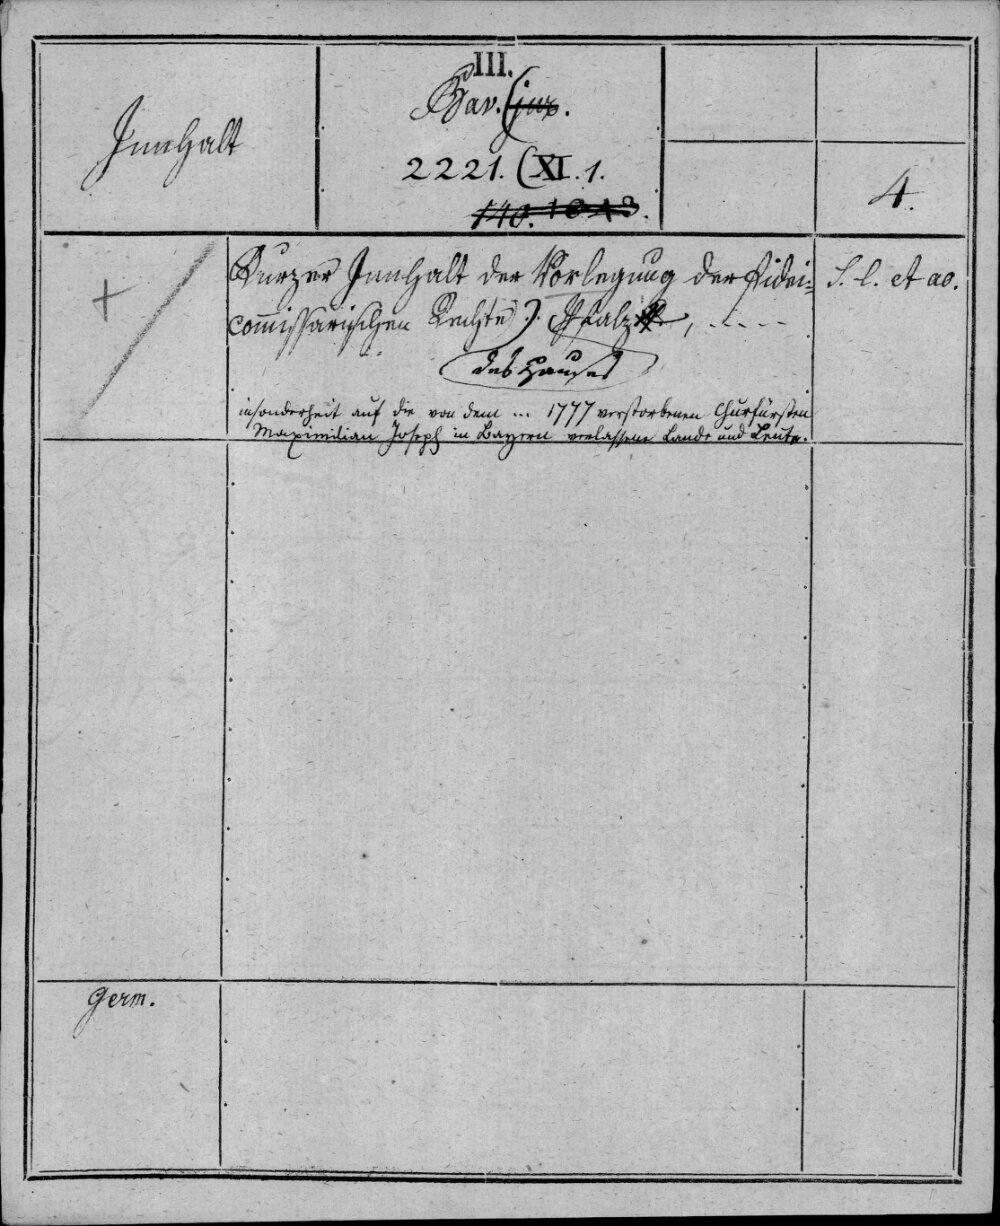 III.
Bav. (jur.
Innhalt
2221. (XI. 1.
4.
Kurzer Innhalt der Vorlegung der Fidei=
S. l. et ao.
commissarischen Rechte). Pfalz, .....
des Hauses
insonderheit auf die von dem ... 1777 verstorbenen Churfürsten
Maximilian Joseph in Bayern verlassene Lande und Leute.
Germ.